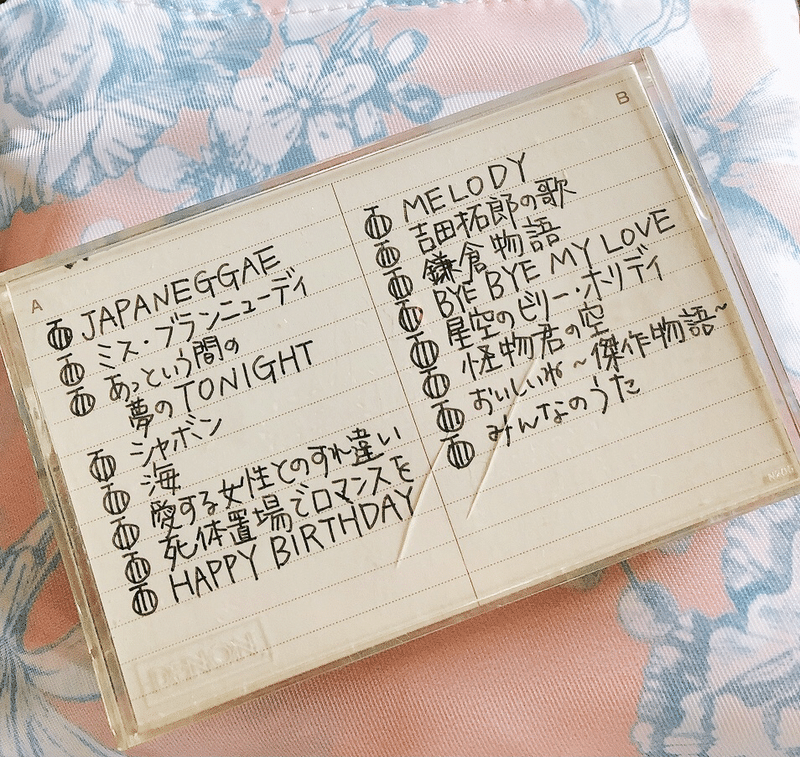 A
JAPANEGGAE
ミス・ブランニューデイ
あっという間の
夢のTONIGHT
シャボン
海
愛する女性とのすれ違い
死体置場でロマンスを
HAPPY BIRTHDAY
B
MELODY
吉田拓郎の歌
鎌倉物語
BYE BYE MY LOVE
星空のビリー・ホリディ
怪物君の空
おいしいね〜傑作物語〜
みんなのうた